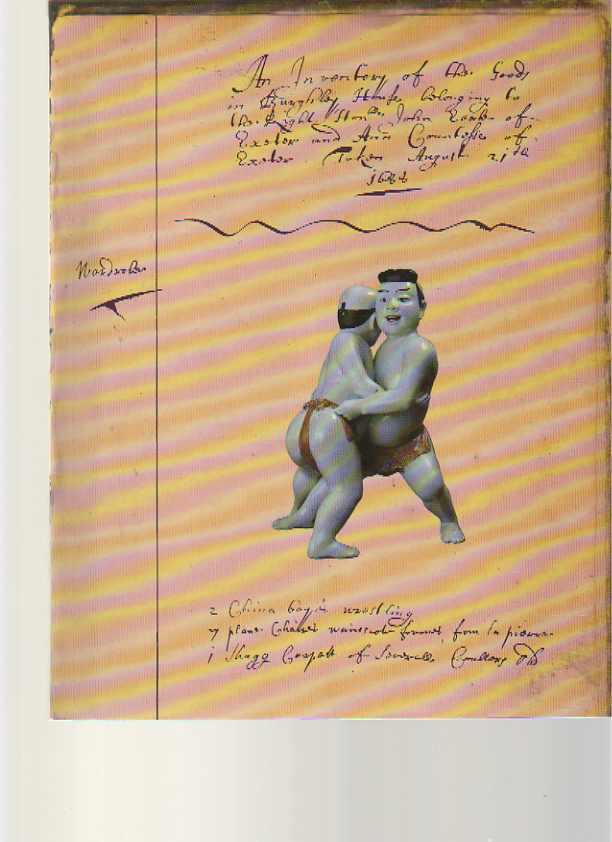 An Inventory of the Goods
in Burghley House belonging to
the Right Hon:ble John Earle of
Exeter and Ann Countesse of
Exeter. Taken August 21th
1688
Wardrobe
2 China boys wrestling
7 plane Chaires wainscote formes,
1 Shagg Carpett of Severall Coullors